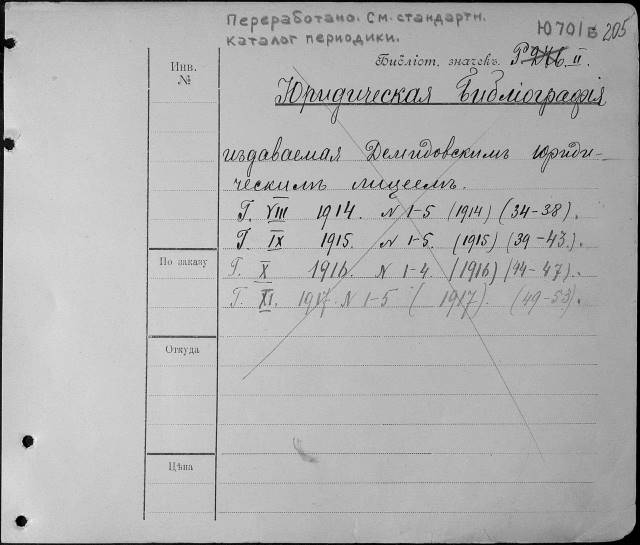 Переработано. См. стандартн.
каталог периодики.
Ю701/Б 205
Библіот. значекъ. II.
Инв.
№
Юридическая Библіографія
издаваемая Демидовскимъ юриди-
ческимъ лицеемъ.
Г. VIII 1914. N 1-5 (1914) (34-38).
Г. IX 1915. N 1-5. (1915) (39-43.).
По заказу
Г. X 1916. N 1-4. (1916) (44-47).
Г. XI. 1917. N 1-5 (1917). (49-53).
Откуда
Цѣна